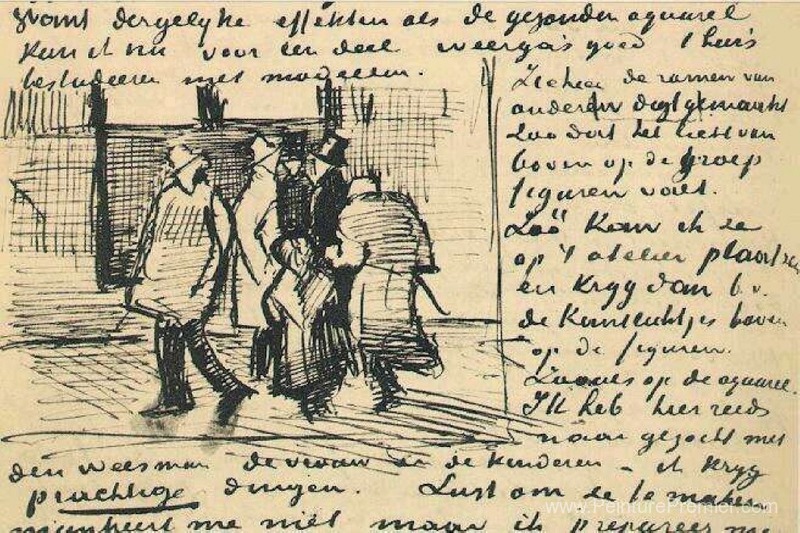 want dergelyke effekten als de gezonden aquarel
kan ik nu voor een deel weergas goed thuis
bestudeeren met modellen.
Ziehier de ramen van
onderen digt gemaakt
Zoodat het licht van
boven op de groep
figuren valt.
Zóó kan ik ze
op 't atelier plaatsen
en kryg dan b.v.
de kantlichtjes boven
op de figuren.
Zooals op de aquarel.
Ik heb hier reeds
naar gezocht met
den weesman de vrouw en de kinderen – ik kryg
prachtige dingen. Lust om ze te maken
mankeert me niet maar ik prepareer me
www.PeinturePremier.com